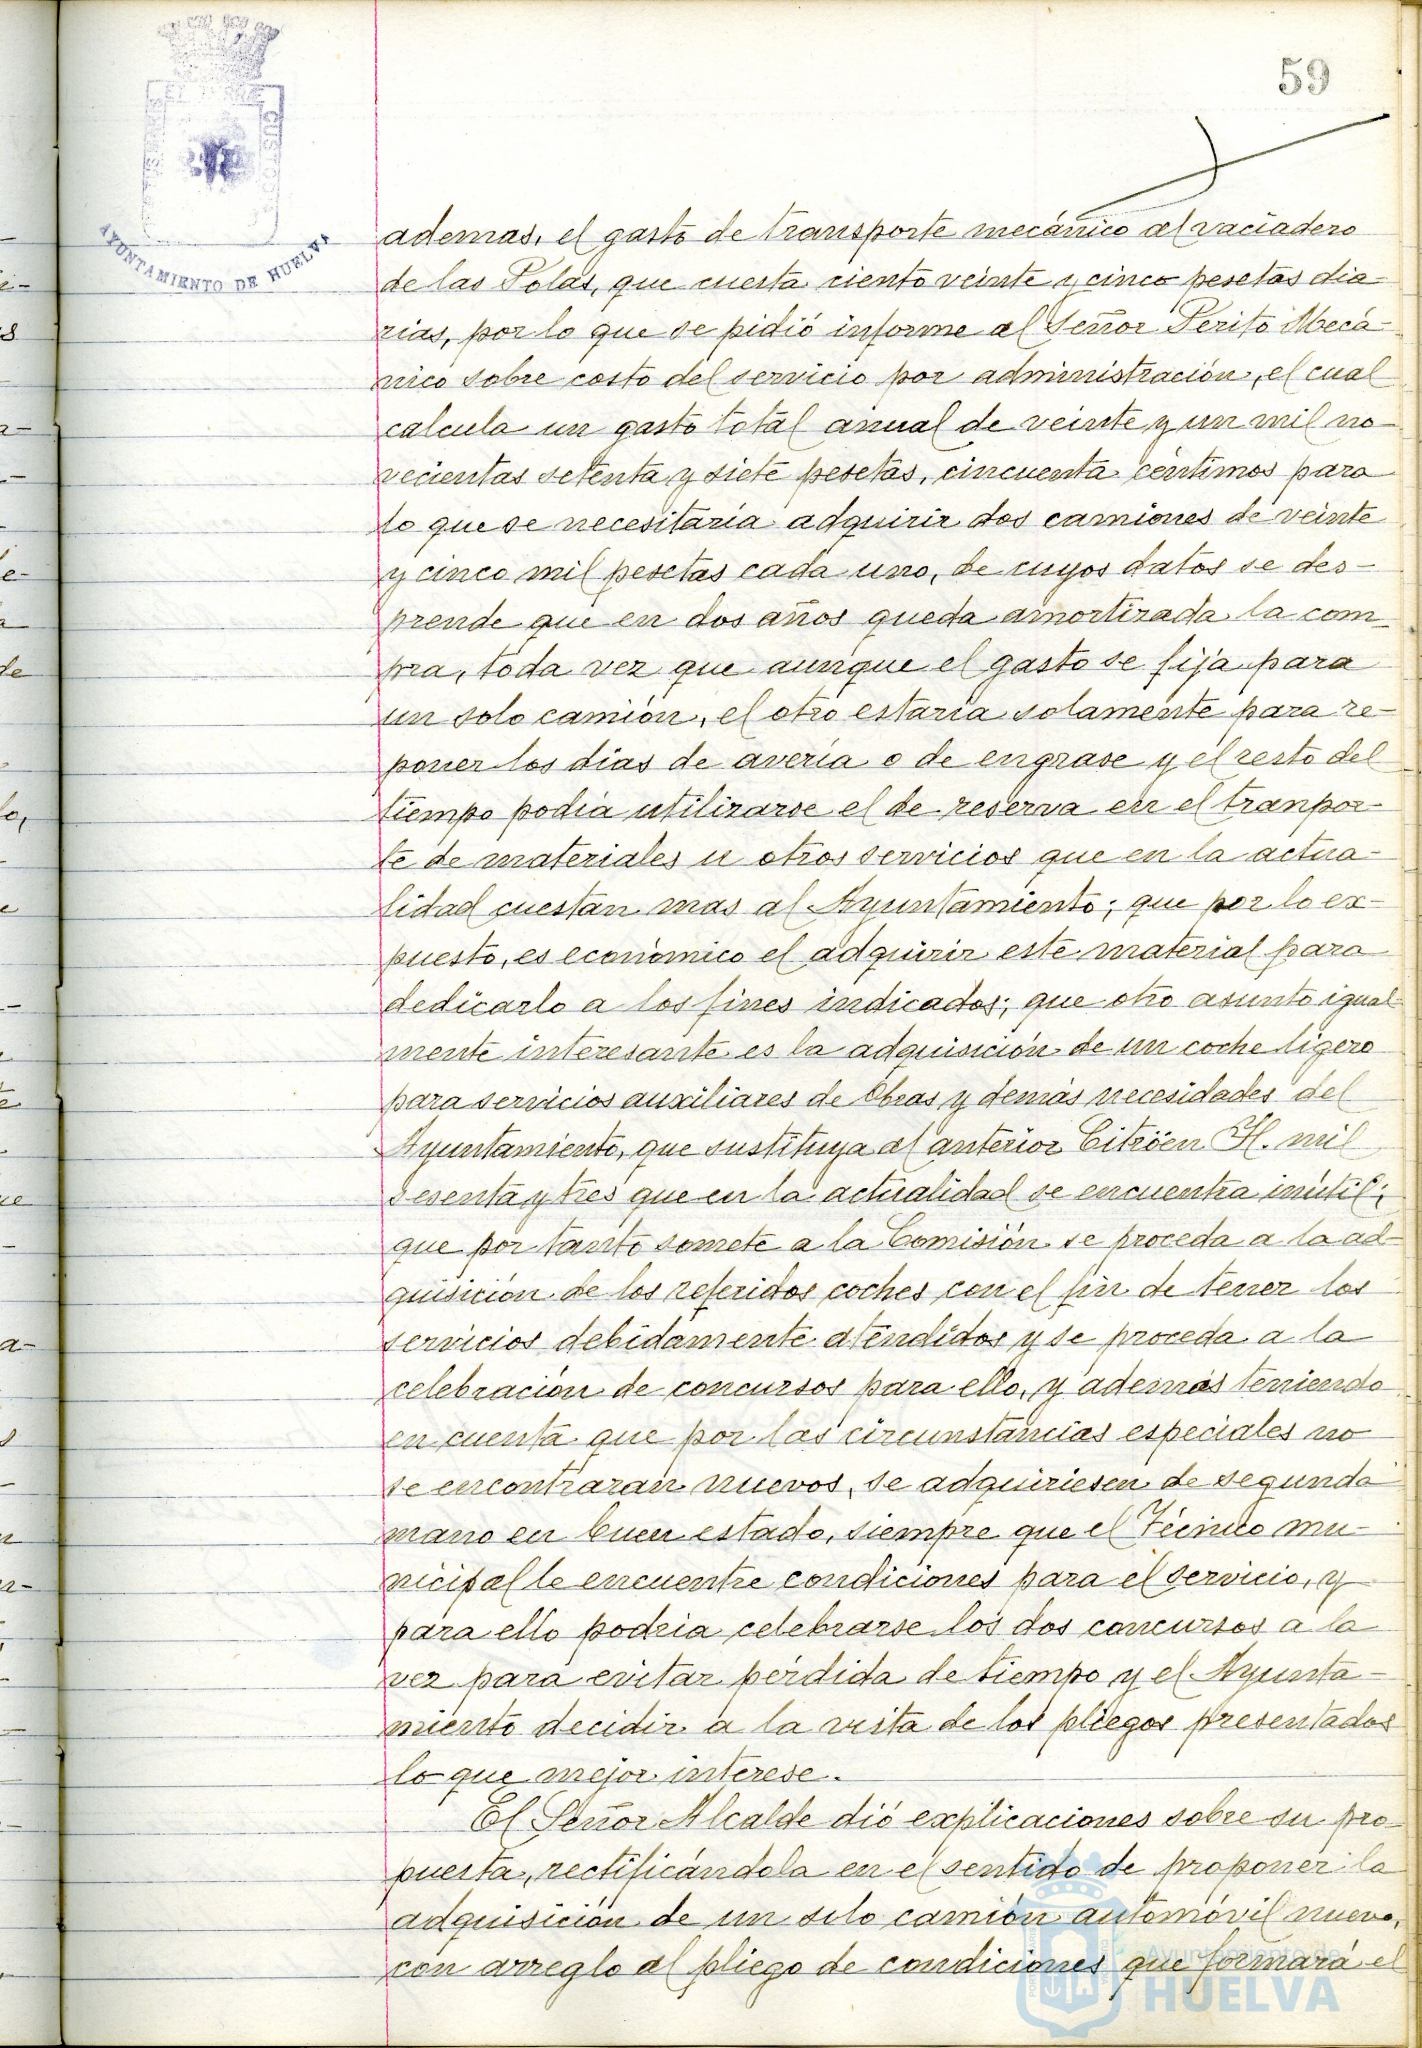 59
AYUNTAMIENTO DE HUELVA
ademas, el gasto de transporte mecánico al vaciadero
de las Polas, que cuesta ciento veinte y cinco pesetas dia-
rias, por lo que se pidió informe al Señor Perito Mecá-
nico sobre costo del servicio por administración, el cual
calcula un gasto total anual de veinte y un mil no-
vecientas setenta y siete pesetas, cincuenta céntimos para
lo que se necesitaria adquirir dos camiones de veinte
y cinco mil pesetas cada uno, de cuyos datos se des-
prende que en dos años queda amortizada la com-
pra, toda vez que aunque el gasto se fija para
un solo camión, el otro estaria solamente para re-
poner los dias de averia o de engrase y el resto del
tiempo podia utilizarse el de reserva en el tranpor-
te de materiales u otros servicios que en la actua-
lidad cuestan mas al Ayuntamiento; que por lo ex-
puesto, es económico el adquirir este material para
dedicarlo a los fines indicados; que otro asunto igual-
mente interesante es la adquisición de un coche ligero
para servicios auxiliares de Obras y demás necesidades del
Ayuntamiento, que sustituya al anterior Citröen H. mil
sesenta y tres que en la actualidad se encuentra inútil;
que por tanto somete a la Comisión se proceda a la ad-
quisición de los referidos coches con el fin de tener los
servicios debidamente atendidos y se proceda a la
celebración de concursos para ello, y además teniendo
en cuenta que por las circunstancias especiales no
se encontraran nuevos, se adquiriesen de segunda
mano en buen estado, siempre que el Técnico mu-
nicipal le encuentre condiciones para el servicio, y
para ello podria celebrarse los dos concursos a la
vez para evitar pérdida de tiempo y el Ayunta-
miento decidir a la vista de los pliegos presentados
lo que mejor interese.
El Señor Alcalde dió explicaciones sobre su pro-
puesta, rectificándola en el sentido de proponer la
adquisición de un solo camión automóvil nuevo,
con arreglo al pliego de condiciones que formará el
Ayuntamiento de
HUELVA